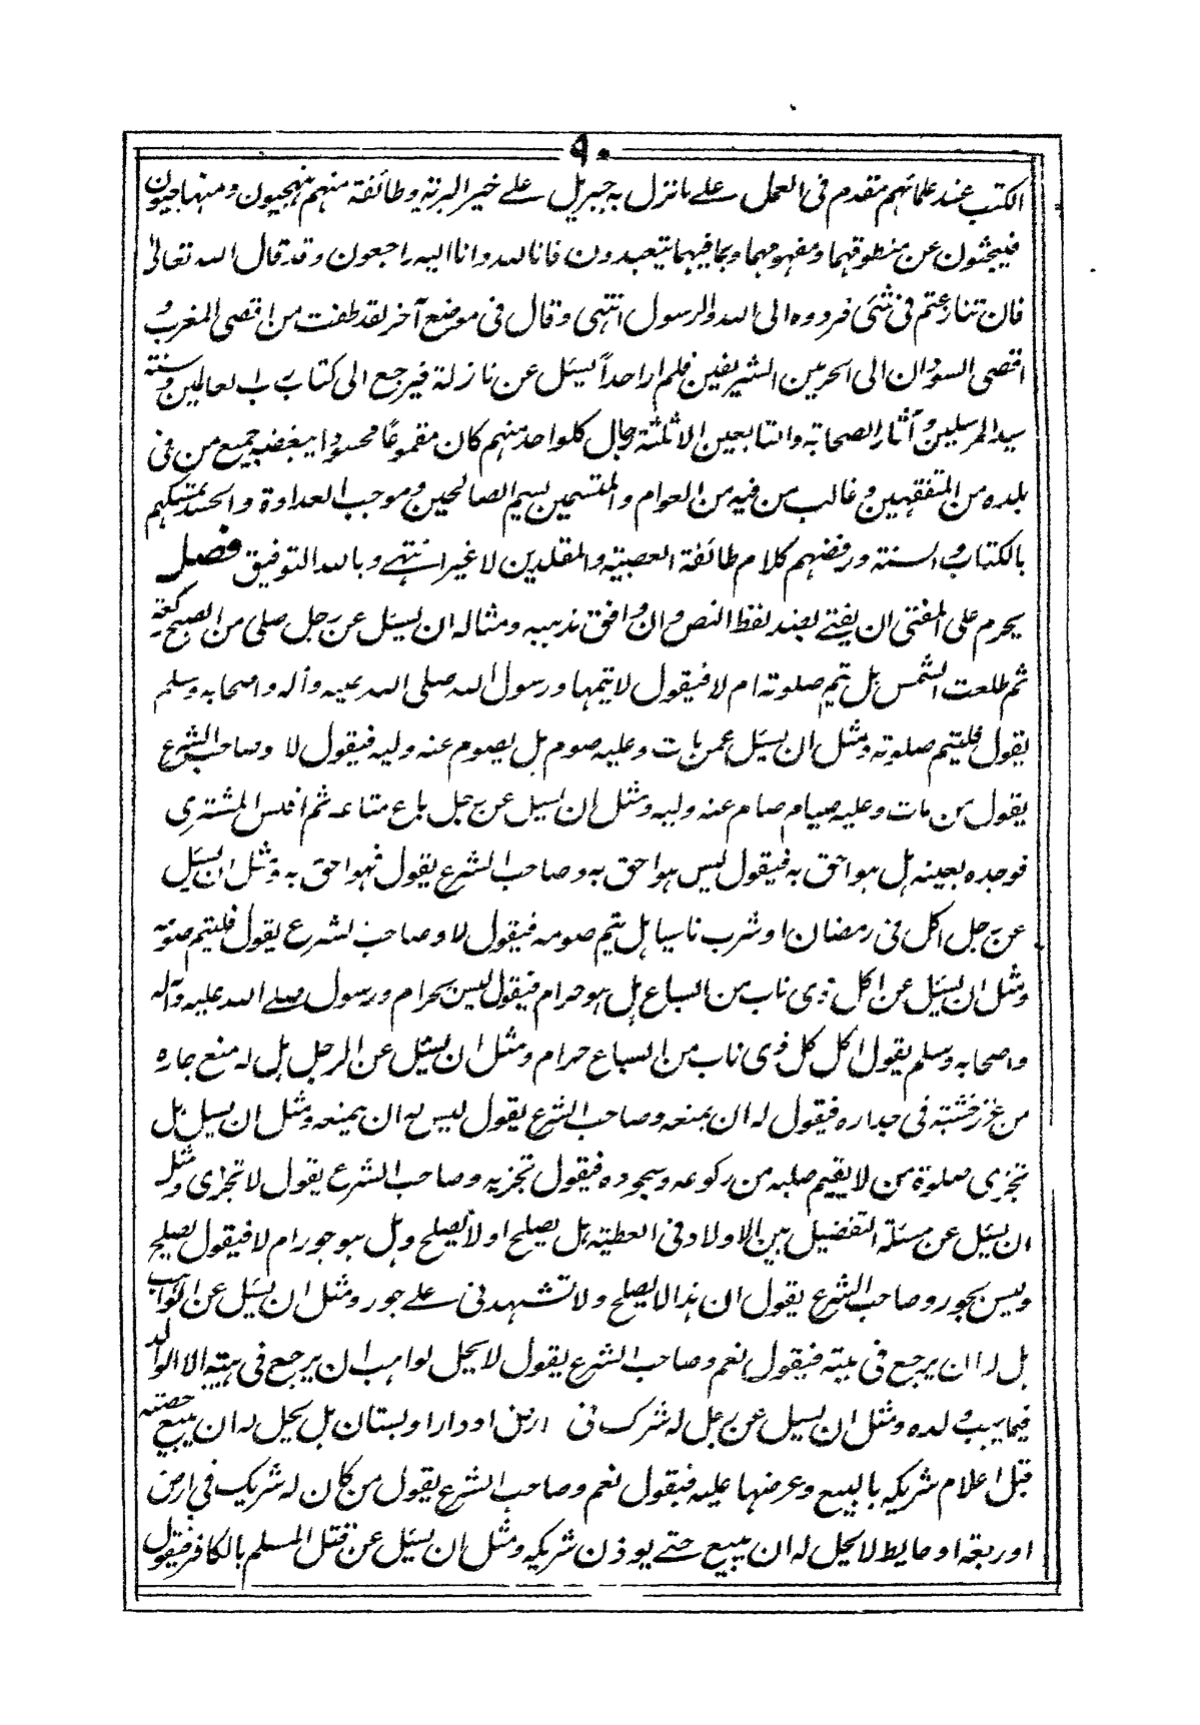 ٩٠
الكتب عند علمائهم مقدم فى العمل على ما نزل به جبريل على خير البرية وطائفة منهم منهجيون ومنهاجيون
فيبحثون عن منطوقهما ومفهومهما وبما فيهما يتعبدون فانا لله وانا اليه راجعون وقد قال الله تعالى
فان تنازعتم فى شئ فردوه الى الله والرسول انتهى وقال فى موضع آخر لقد طفت من اقصى المغرب و
اقصى السودان الى الحرمين الشريفين فلم ار احداً يسئل عن نازلة فيرجع الى كتاب رب العالمين وسنة
سيد المرسلين وآثار الصحابة والتابعين الا ثلثة رجال كل واحد منهم كان مقموعًا محسودا يبغضه جميع من فى
بلده من المتفقهين وغالب من فيه من العوام والمتسمين بسيم الصالحين وموجب العداوة والحسد تمسكهم
بالكتاب والسنة ورفضهم كلام طائفة العصبية والمقلدين لا غير انتهى وبالله التوفيق فصل
يحرم على المفتى ان يفتى بضد لفظ النص وان وافق مذهبه ومثاله ان يسئل عن رجل صلى من الصبح ركعة
ثم طلعت الشمس هل يتم صلوته ام لا فيقول لا يتمها ورسول الله صلى الله عليه وآله واصحابه وسلم
يقول فليتم صلوته ومثل ان يسئل عمن مات وعليه صوم هل يصوم عنه وليه فيقول لا وصاحب الشرع
يقول من مات وعليه صيام صام عنه وليه ومثل ان يسيل عن رجل باع متاعه ثم افلس المشترى
فوجده بعينه هل هو احق به فيقول ليس هو احق به وصاحب الشرع يقول فهو احق به ومثل ان يسئل
عن رجل اكل فى رمضان او شرب ناسيا هل يتم صومه فيقول لا وصاحب الشرع يقول فليتم صومه
ومثل ان يسئل عن اكل ذى ناب من السباع هل هو حرام فيقول ليس بحرام ورسول الله صلى الله عليه وآله
واصحابه وسلم يقول اكل كل ذى ناب من السباع حرام ومثل ان يسئل عن الرجل هل له منع جاره
من غرز خشبة فى جداره فيقول له ان يمنعه وصاحب الشرع يقول ليس له ان يمنعه ومثل ان يسيل هل
تجزى صلوة من لا يقيم صلبه من ركوعه وسجوده فيقول تجزيه وصاحب الشرع يقول لا تجزى ومثل
ان يسئل عن مسئلة التفضيل بين الاولاد فى العطية هل يصلح او لا يصلح وهل هو جور ام لا فيقول يصلح
وليس بجور وصاحب الشرع يقول ان هذا لا يصلح ولا تشهدنى على جور ومثل ان يسئل عن الواهب
هل له ان يرجع فى هبته فيقول نعم وصاحب الشرع يقول لا يحل لواهب ان يرجع فى هبته الا الوالد
فيما يهب ولده ومثل ان يسيل عن رجل له شرك فى ارض او دار او بستان هل يحل له ان يبيع حصته
قبل اعلام شريكه بالبيع وعرضها عليه فيقول نعم وصاحب الشرع يقول من كان له شريك فى ارض
او ربعة او حايط لا يحل له ان يبيع حتى يوذن شريكه ومثل ان يسئل عن قتل المسلم بالكافر فيقول